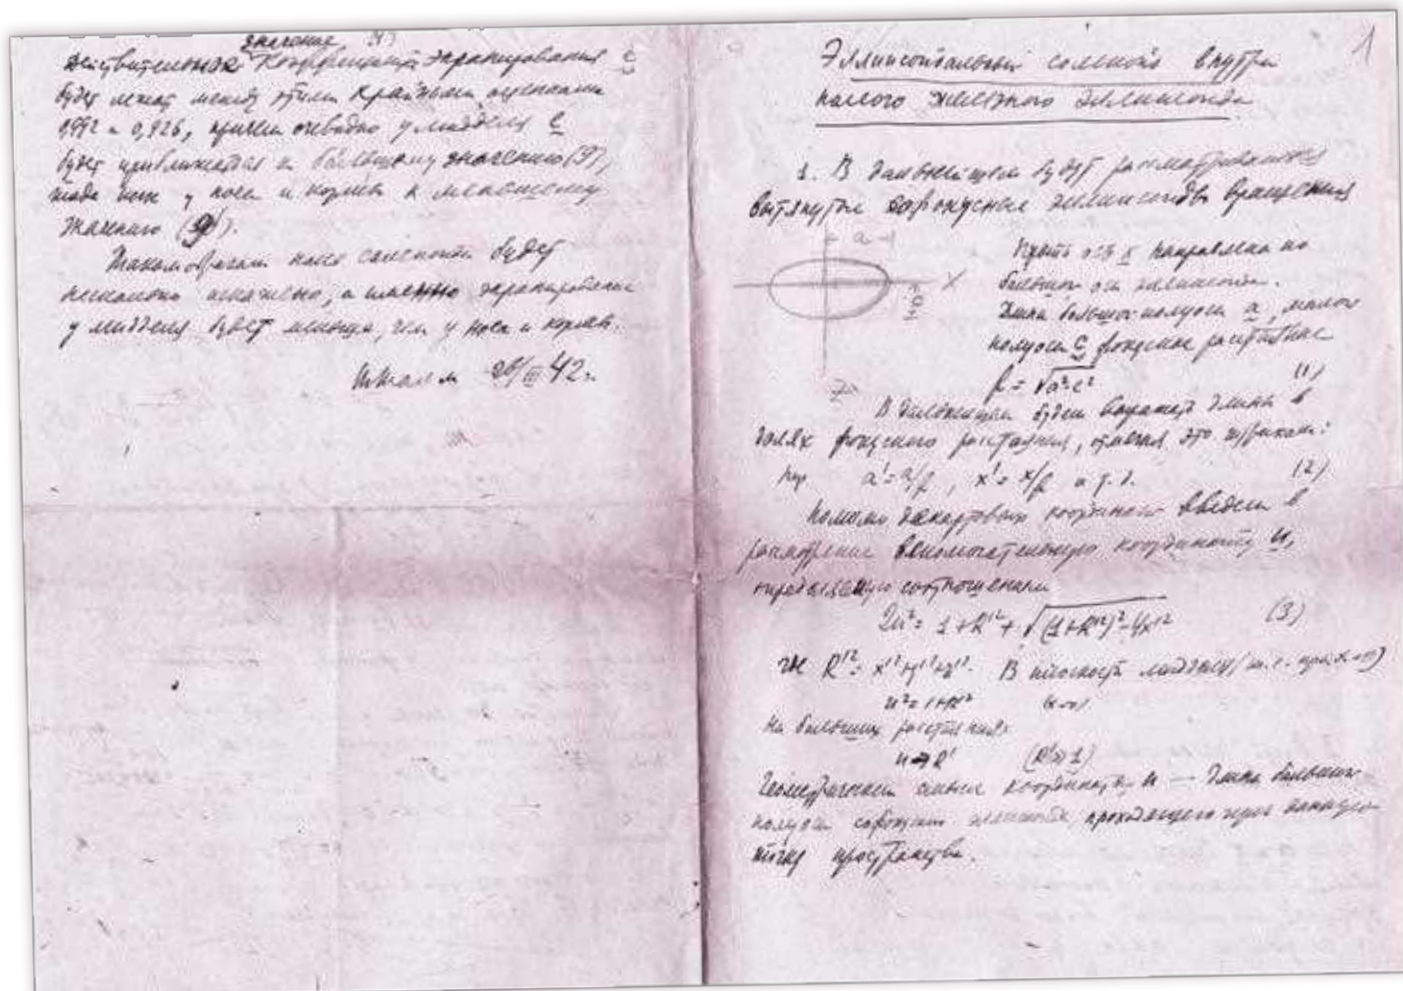 значение
действительное коэффициент экранирования
будет лежать между этими крайними оценками
и 0,926, причем очевидно у мидделя
будет приближаться к большему значению (9),
тогда как у носа и кормы к меньшему
значению
Таким образом поле соленоида будет
несколько искажено, а именно экранирование
у мидделя будет меньше, чем у носа и кормы.
42г.
1
Эллипсоидальный соленоид внутри
полого железного эллипсоида
1. В дальнейшем будут рассматриваться
вытянутые софокусные эллипсоиды вращения
a
X
Z
Пусть ось x направлена по
большой оси эллипсоида.
Длина большой полуоси a, малой
полуоси c, фокусное расстояние
f = √a²-c² (1)
В дальнейшем будем выражать длины в
долях фокусного расстояния, отмечая это штрихами:
a' = a/f, x' = x/f и т.д. (2)
Помимо декартовых координат введем в
рассмотрение вспомогательную координату u,
определяемую соотношением
2u² = 1+R'²+√(1+R'²)²-4x'² (3)
где R'² = x'²+y'²+z'². В плоскости мидделя (т.е. при x=0)
u² = 1+R'² (x=0)
На больших расстояниях
u → R' (R'≫1)
Геометрический смысл координаты u — длина большой
полуоси софокусного эллипсоида, проходящего через данную
точку пространства.